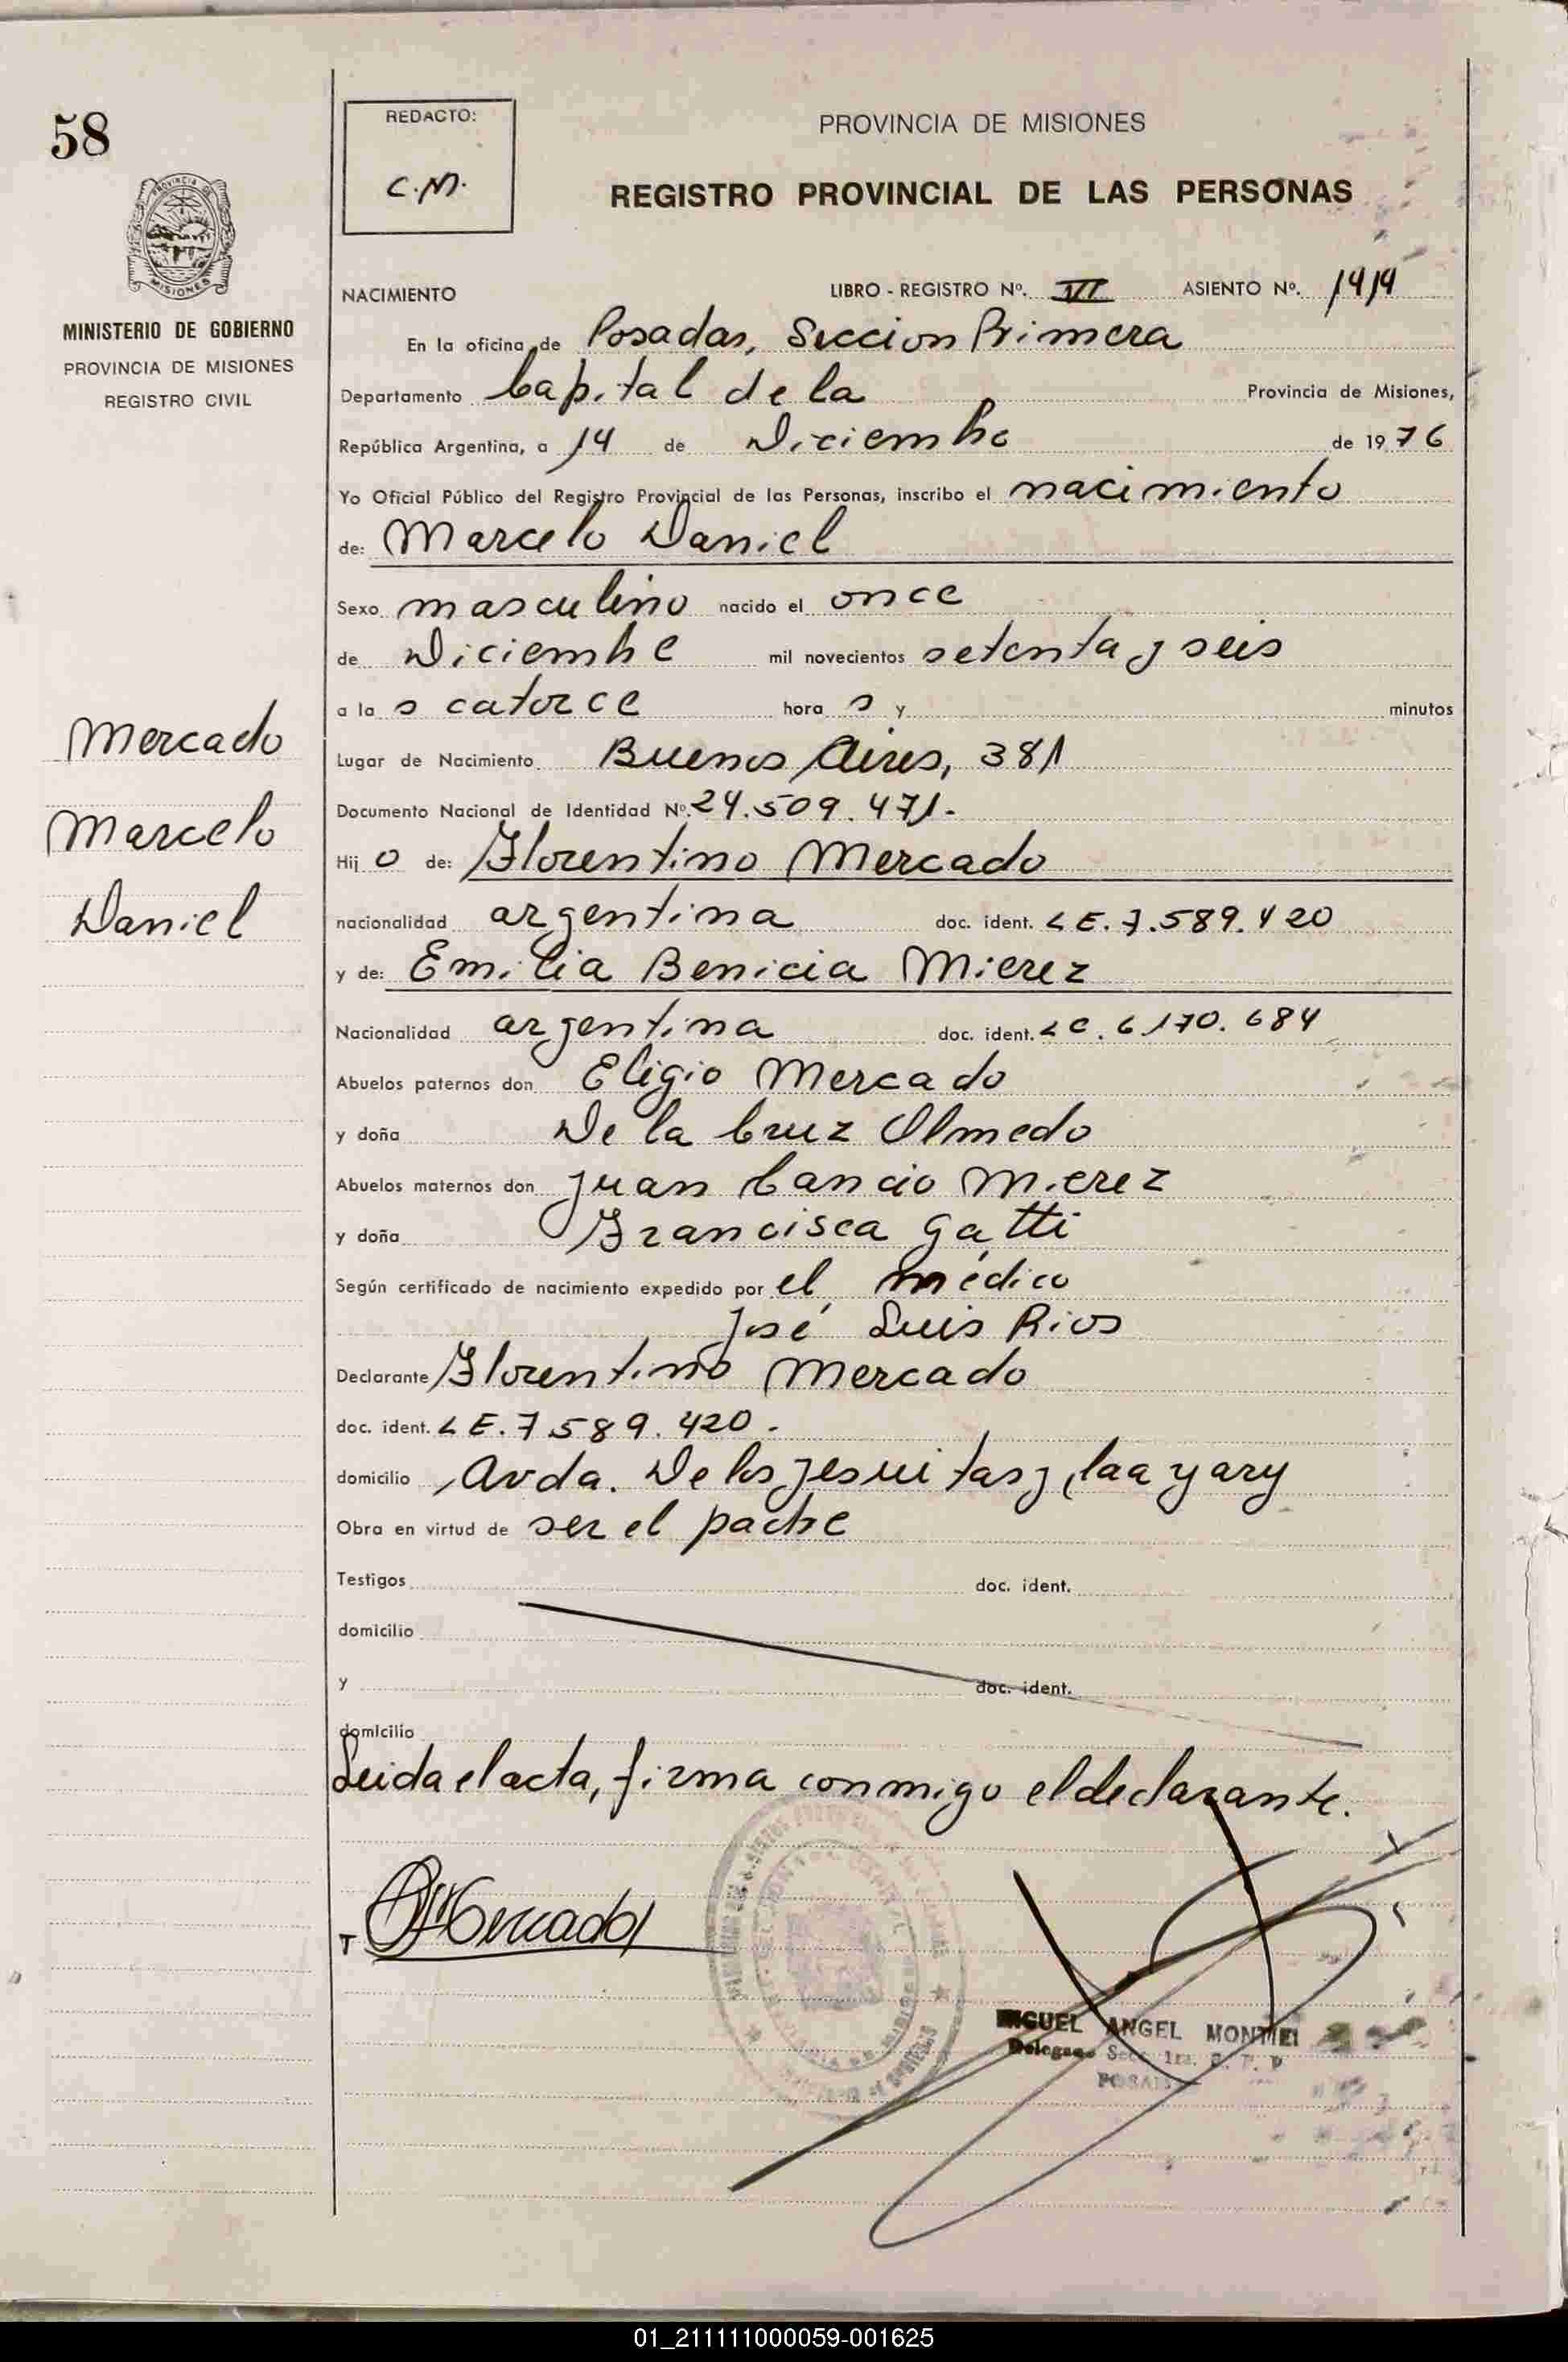 58
PROVINCIA DE MISIONES
MINISTERIO DE GOBIERNO
PROVINCIA DE MISIONES
REGISTRO CIVIL
Mercado
Marcelo
Daniel
REDACTO:
C.M.
PROVINCIA DE MISIONES
REGISTRO PROVINCIAL DE LAS PERSONAS
NACIMIENTO LIBRO - REGISTRO Nº. VI ASIENTO Nº. 1414
En la oficina de Posadas, Seccion Primera
Departamento Capital de la Provincia de Misiones,
República Argentina, a 14 de Diciembre de 1976
Yo Oficial Público del Registro Provincial de las Personas, inscribo el nacimiento
de: Marcelo Daniel
Sexo masculino nacido el once
de Diciembre mil novecientos setenta y seis
a la s catorce hora s y minutos
Lugar de Nacimiento Buenos Aires, 381
Documento Nacional de Identidad Nº. 24.509.471.-
Hij o de: Florentino Mercado
nacionalidad argentina doc. ident. LE. 7.589.420
y de: Emilia Benicia Mierez
Nacionalidad argentina doc. ident. LC. 6.170.684
Abuelos paternos don Eligio Mercado
y doña De la Cruz Olmedo
Abuelos maternos don Juan Cancio Mierez
y doña Francisca Gatti
Según certificado de nacimiento expedido por el médico
José Luis Rios
Declarante Florentino Mercado
doc. ident. LE. 7.589.420.
domicilio Avda. De los Jesuitas y
Obra en virtud de ser el padre
Testigos doc. ident.
domicilio
y doc. ident.
domicilio
Leida el acta, firma conmigo el declarante.
Mercado
MIGUEL ANGEL
Delegado Secc. 1ra.
POSADAS
01_211111000059-001625